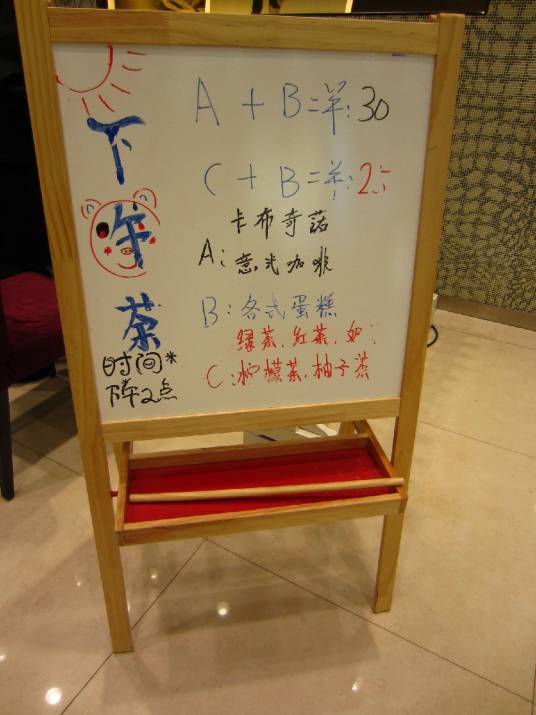 下午茶
时间*
下午2点
A + B = 羊: 30
C + B = 羊: 25
卡布奇诺
A: 意式咖啡
B: 各式蛋糕
绿茶、红茶、奶
C: 柠檬茶、柚子茶